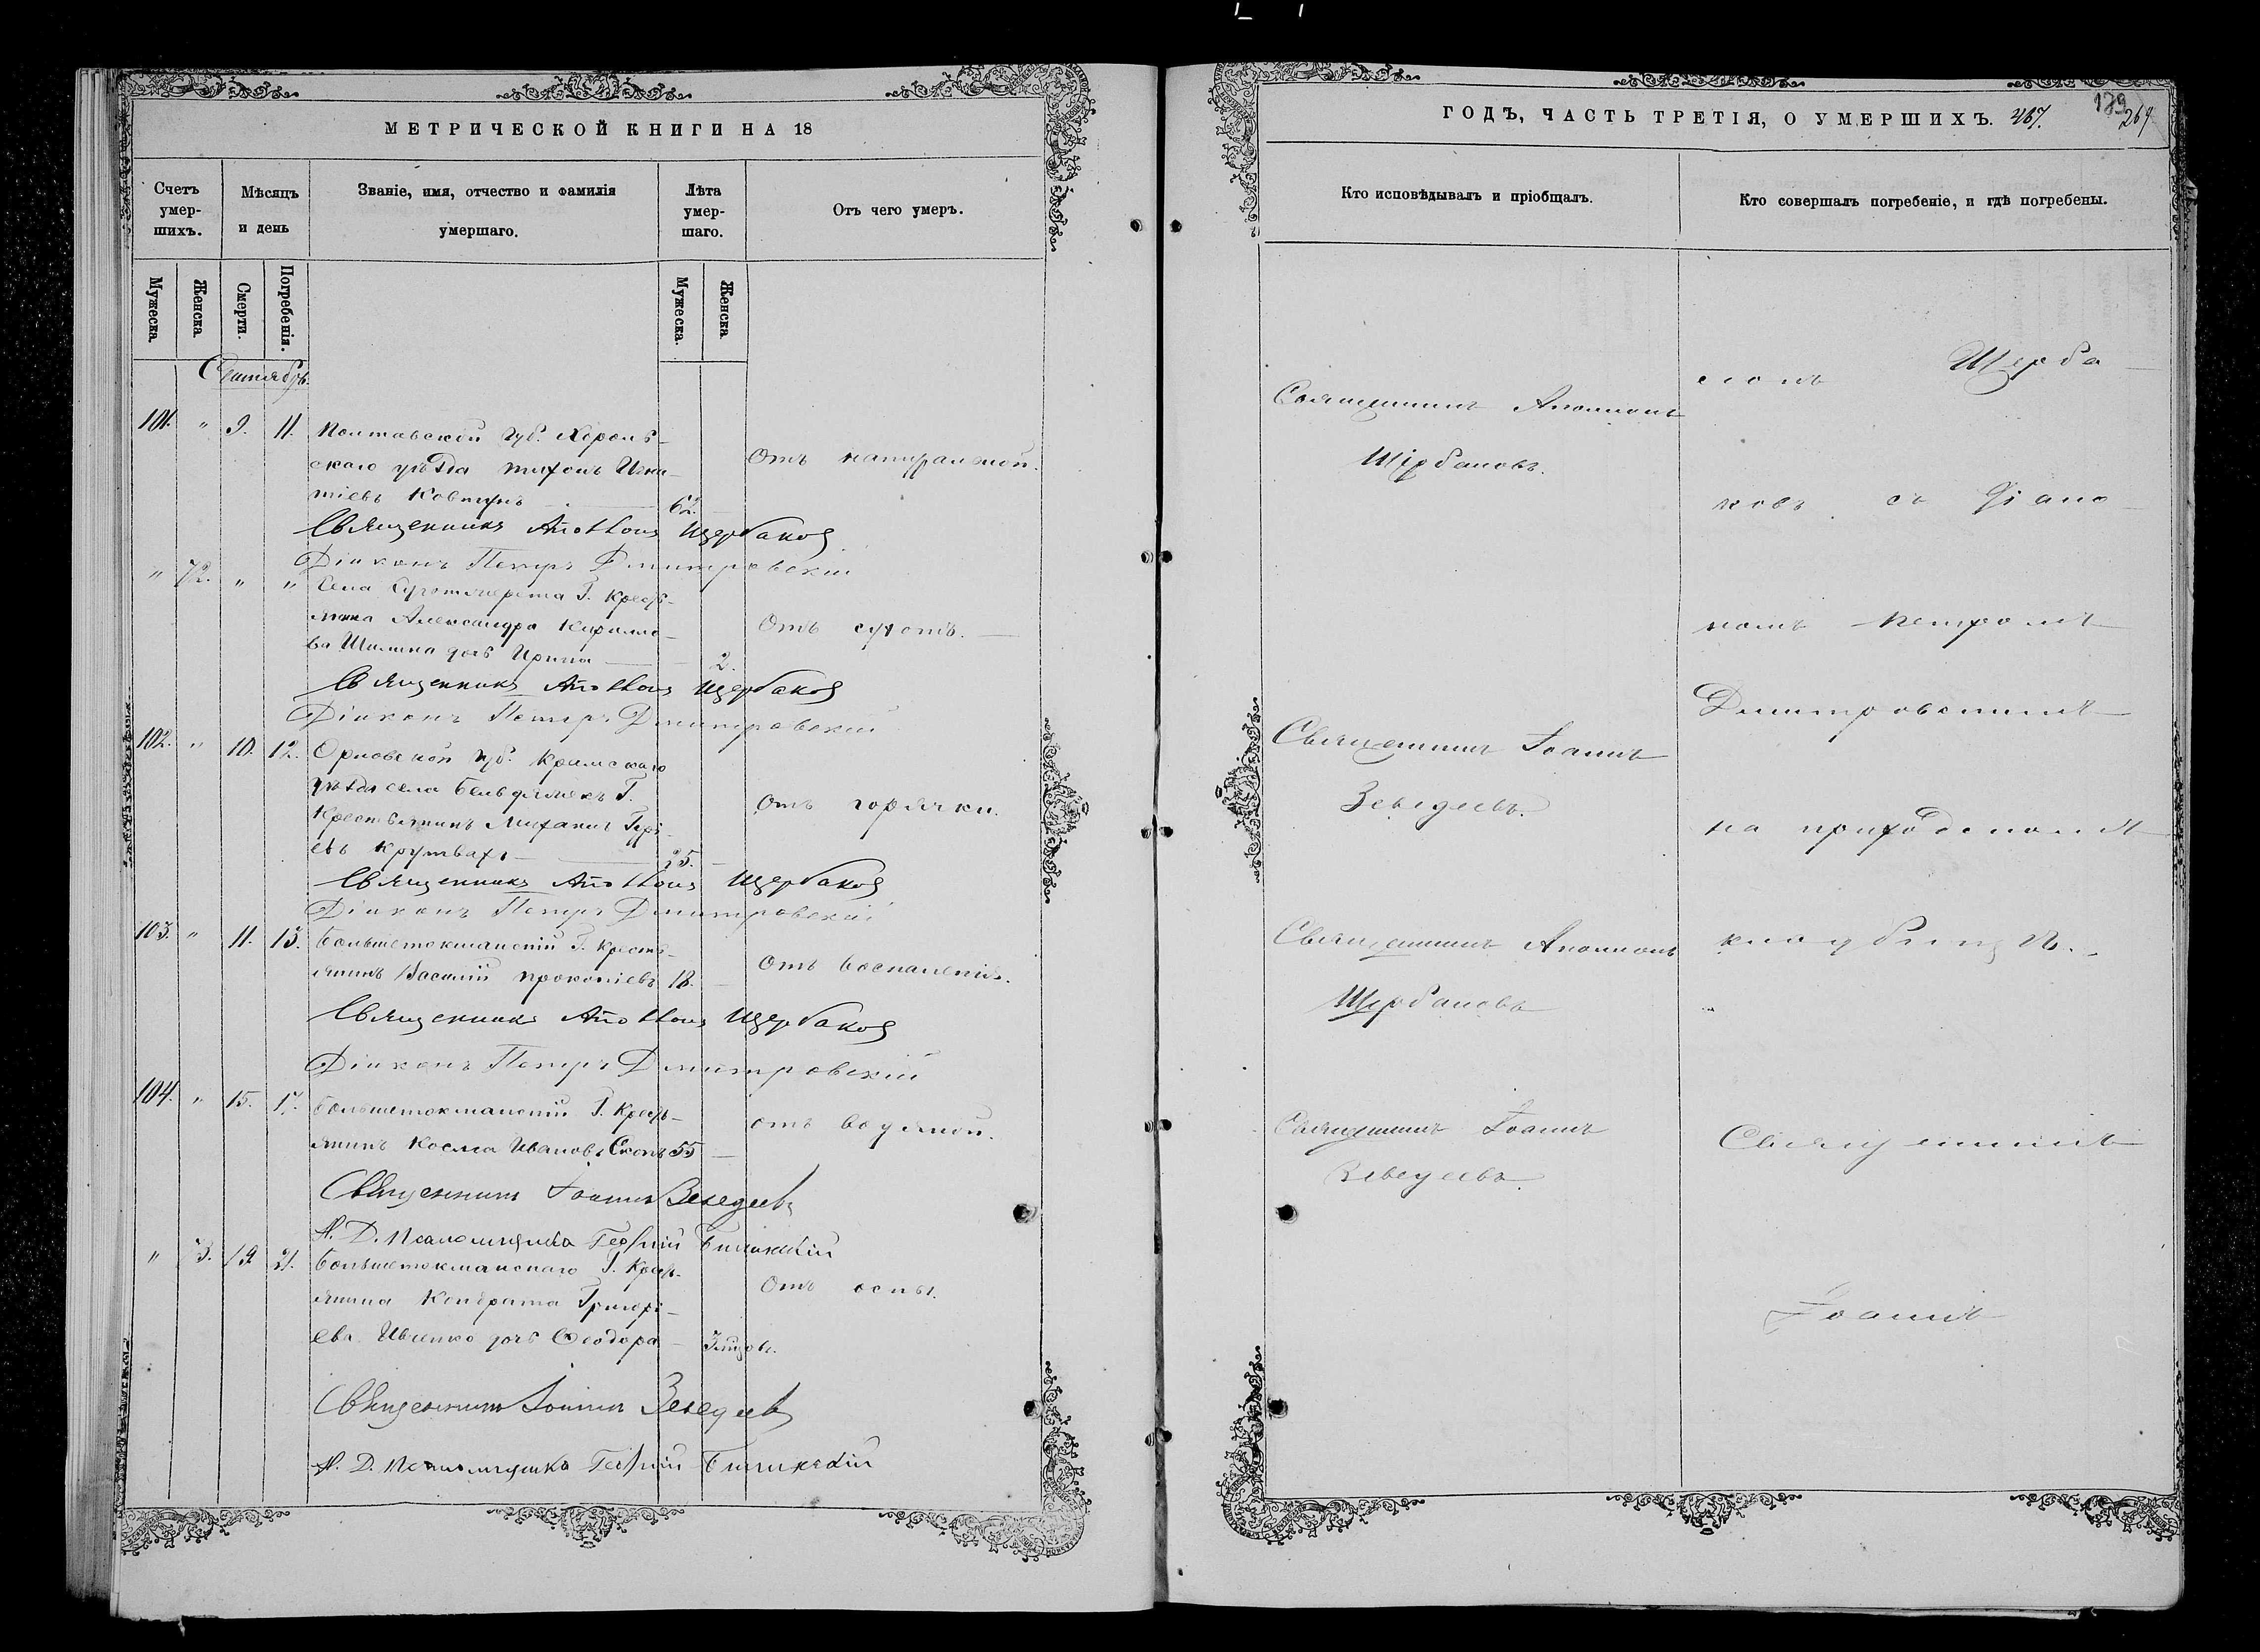 МЕТРИЧЕСКОЙ КНИГИ НА 18
Счетъ умер-шихъ.
Мѣсяцъ и день
Званіе, имя, отчество и фамилія умершаго.
Лѣта умер-шаго.
Отъ чего умеръ.
Мужеска
Женска
Смерти.
Погребенія.
Мужеска.
Женска
Сентябрь.
101. " 9. 11. Полтавской губ. Хороль-
скаго уѣзда Тихонъ Игна-
тіевъ Ковтунъ 62.
Отъ натуральной.
Священникъ Аполлонъ Щербаковъ
Діаконъ Петръ Дмитровскій
" 72. " " Села Г. Кресть-
янина Александра Кирило-
ва Шилина дочь Ирина 2.
Отъ сухотъ.
Священникъ Аполлонъ Щербаковъ
Діаконъ Петръ Дмитровскій
102. " 10. 12. Орловской губ. Крамскаго
уѣзда села Г.
Крестьянинъ Михаилъ
евъ
Отъ горячки.
Священникъ Аполлонъ Щербаковъ
Діаконъ Петръ Дмитровскій
103. " 11. 13. Большетокмакскій Г. Кресть-
янинъ Василій Прокопіевъ 18.
Отъ воспаленія.
Священникъ Аполлонъ Щербаковъ
Діаконъ Петръ Дмитровскій
104. " 15. 17. Большетокмакскій Г. Кресть-
янинъ Косма Ивановъ 55
Отъ водяной.
Священникъ Іоаннъ Зеведеевъ
И. Д. Псаломщика Георгій
" 73. 19. 21. Большетокмакскаго Г. Кресть-
янина Кондрата Григорі-
ева Ивченко дочь Ѳеодора
Отъ оспы.
Священникъ Іоаннъ Зеведеевъ
И. Д. Псаломщика Георгій
ГОДЪ, ЧАСТЬ ТРЕТІЯ, О УМЕРШИХЪ. 267.
179
267
Кто исповѣдывалъ и пріобщалъ.
Кто совершалъ погребеніе, и гдѣ погребены.
Священникъ Аполлонъ
Щербаковъ.
Священникъ Іоаннъ
Зеведеевъ.
Священникъ Аполлонъ
Щербаковъ
Священникъ Іоаннъ
Зеведеевъ.
лонъ Щерба-
ковъ съ Діако-
номъ Петромъ
Дмитровскимъ
на приходскомъ
кладбищѣ.
Священникъ
Іоаннъ